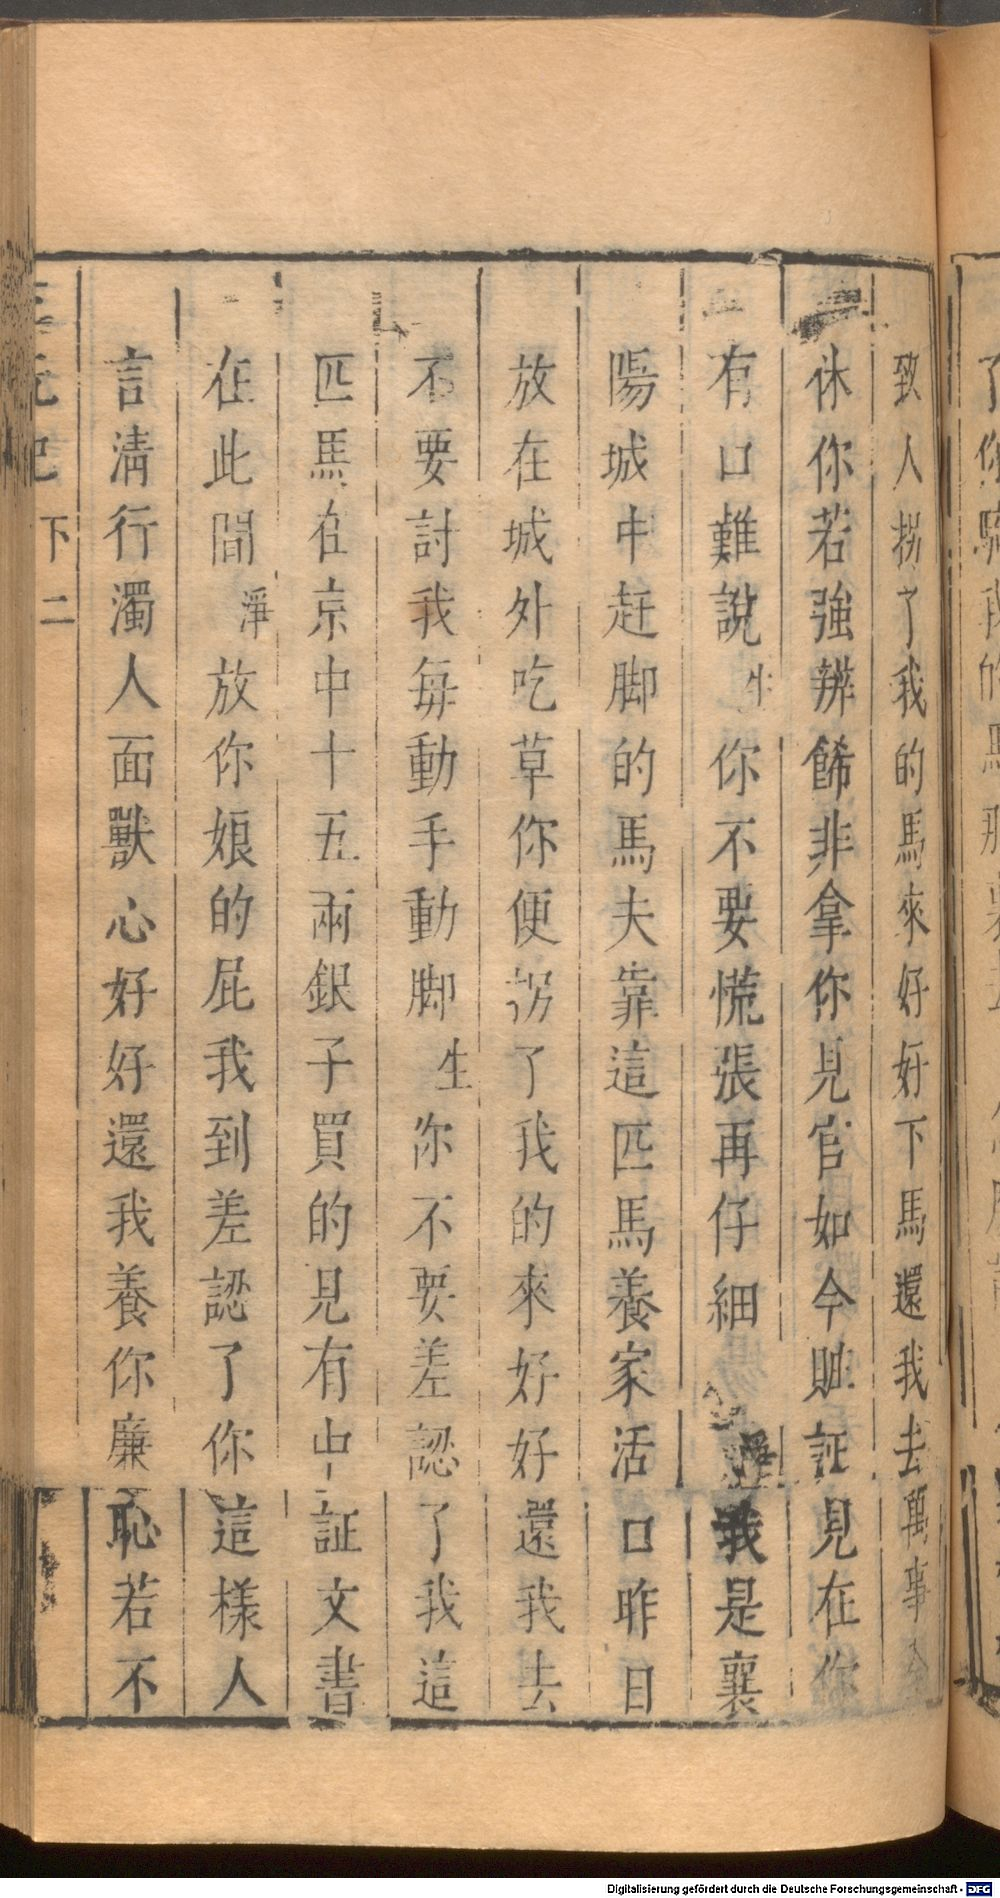 致人拐了我的馬來好好下馬還我去萬事全
休你若強辨餙非拿你見官如今賍証見在你
有口難說生你不要慌張再仔細淨我是襄
陽城中赶脚的馬夫靠這匹馬養家活口昨日
放在城外吃草你便拐了我的來好好還我去
不要討我每動手動脚生你不要差認了我這
匹馬在京中十五兩銀子買的見有中証文書
在此間淨放你娘的屁我到差認了你這樣人
言清行濁人面獸心好好還我養你廉恥若不
三元記 下 二
Digitalisierung gefördert durch die Deutsche Forschungsgemeinschaft - DFG